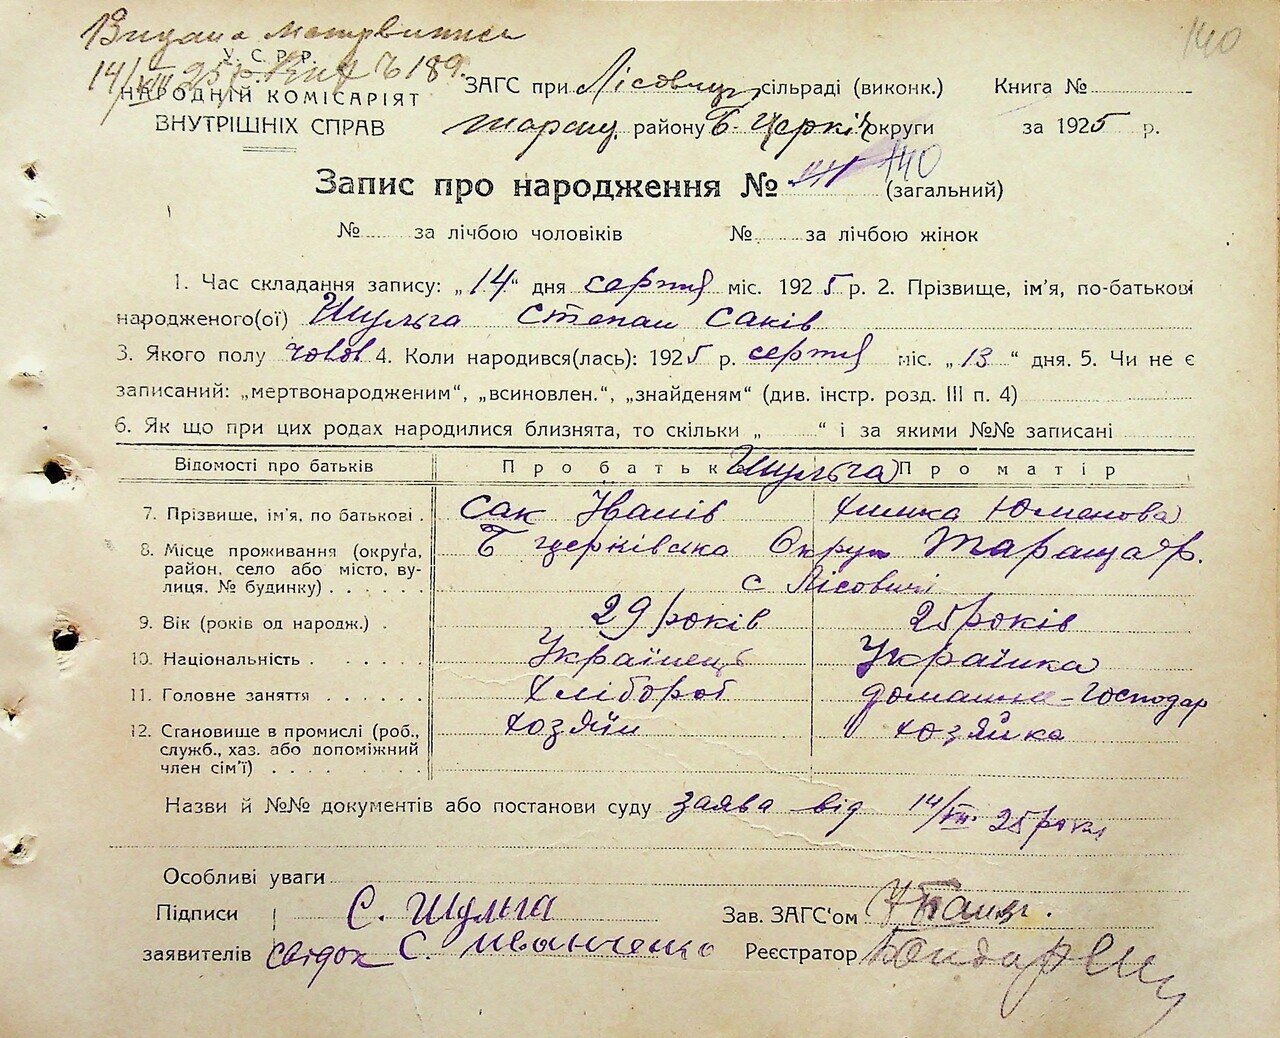 140
Видана метрвипись
У. С. Р. Р.
14/VIII 25 р. № 189.
НАРОДНІЙ КОМІСАРІЯТ
ВНУТРІШНІХ СПРАВ
ЗАГС при Лісовиц. сільраді (виконк.) Книга №
Таращ. району Б-Церків округи за 1925 р.
Запис про народження № 140 (загальний)
№ за лічбою чоловіків № за лічбою жінок
1. Час складання запису: „14" дня серпня міс. 1925 р. 2. Прізвище, ім'я, по-батькові
народженого(ої) Шульга Степан Саків
3. Якого полу чолов 4. Коли народився(лась): 1925 р. серпня міс. „13" дня. 5. Чи не є
записаний: „мертвонародженим", „всиновлен.", „знайденям" (див. інстр. розд. III п. 4)
6. Як що при цих родах народилися близнята, то скільки „ " і за якими №№ записані
Відомості про батьків Про батьк Шульга Про матір
7. Прізвище, ім'я, по батькові . Сак Іванів Юменова
8. Місце проживання (округа, Б церківська Округ Тараща р.
район, село або місто, ву-
лиця, № будинку) . . . . . с Лісовичі
9. Вік (років од народж.) . 29 років 25 років
10. Національність . . . . . . Українець Українка
11. Головне заняття . . . . . . хлібороб домашнє-господар
12. Становище в промислі (роб., хозяїн хозяйка
служб., хаз. або допоміжний
член сім'ї) . . . . . . . .
Назви й №№ документів або постанови суду заява від 14/VIII. 25 рокл
Особливі уваги
Підписи С. Шульга Зав. ЗАГС'ом
заявителів свідок С. Іванченко Реєстратор Бондар